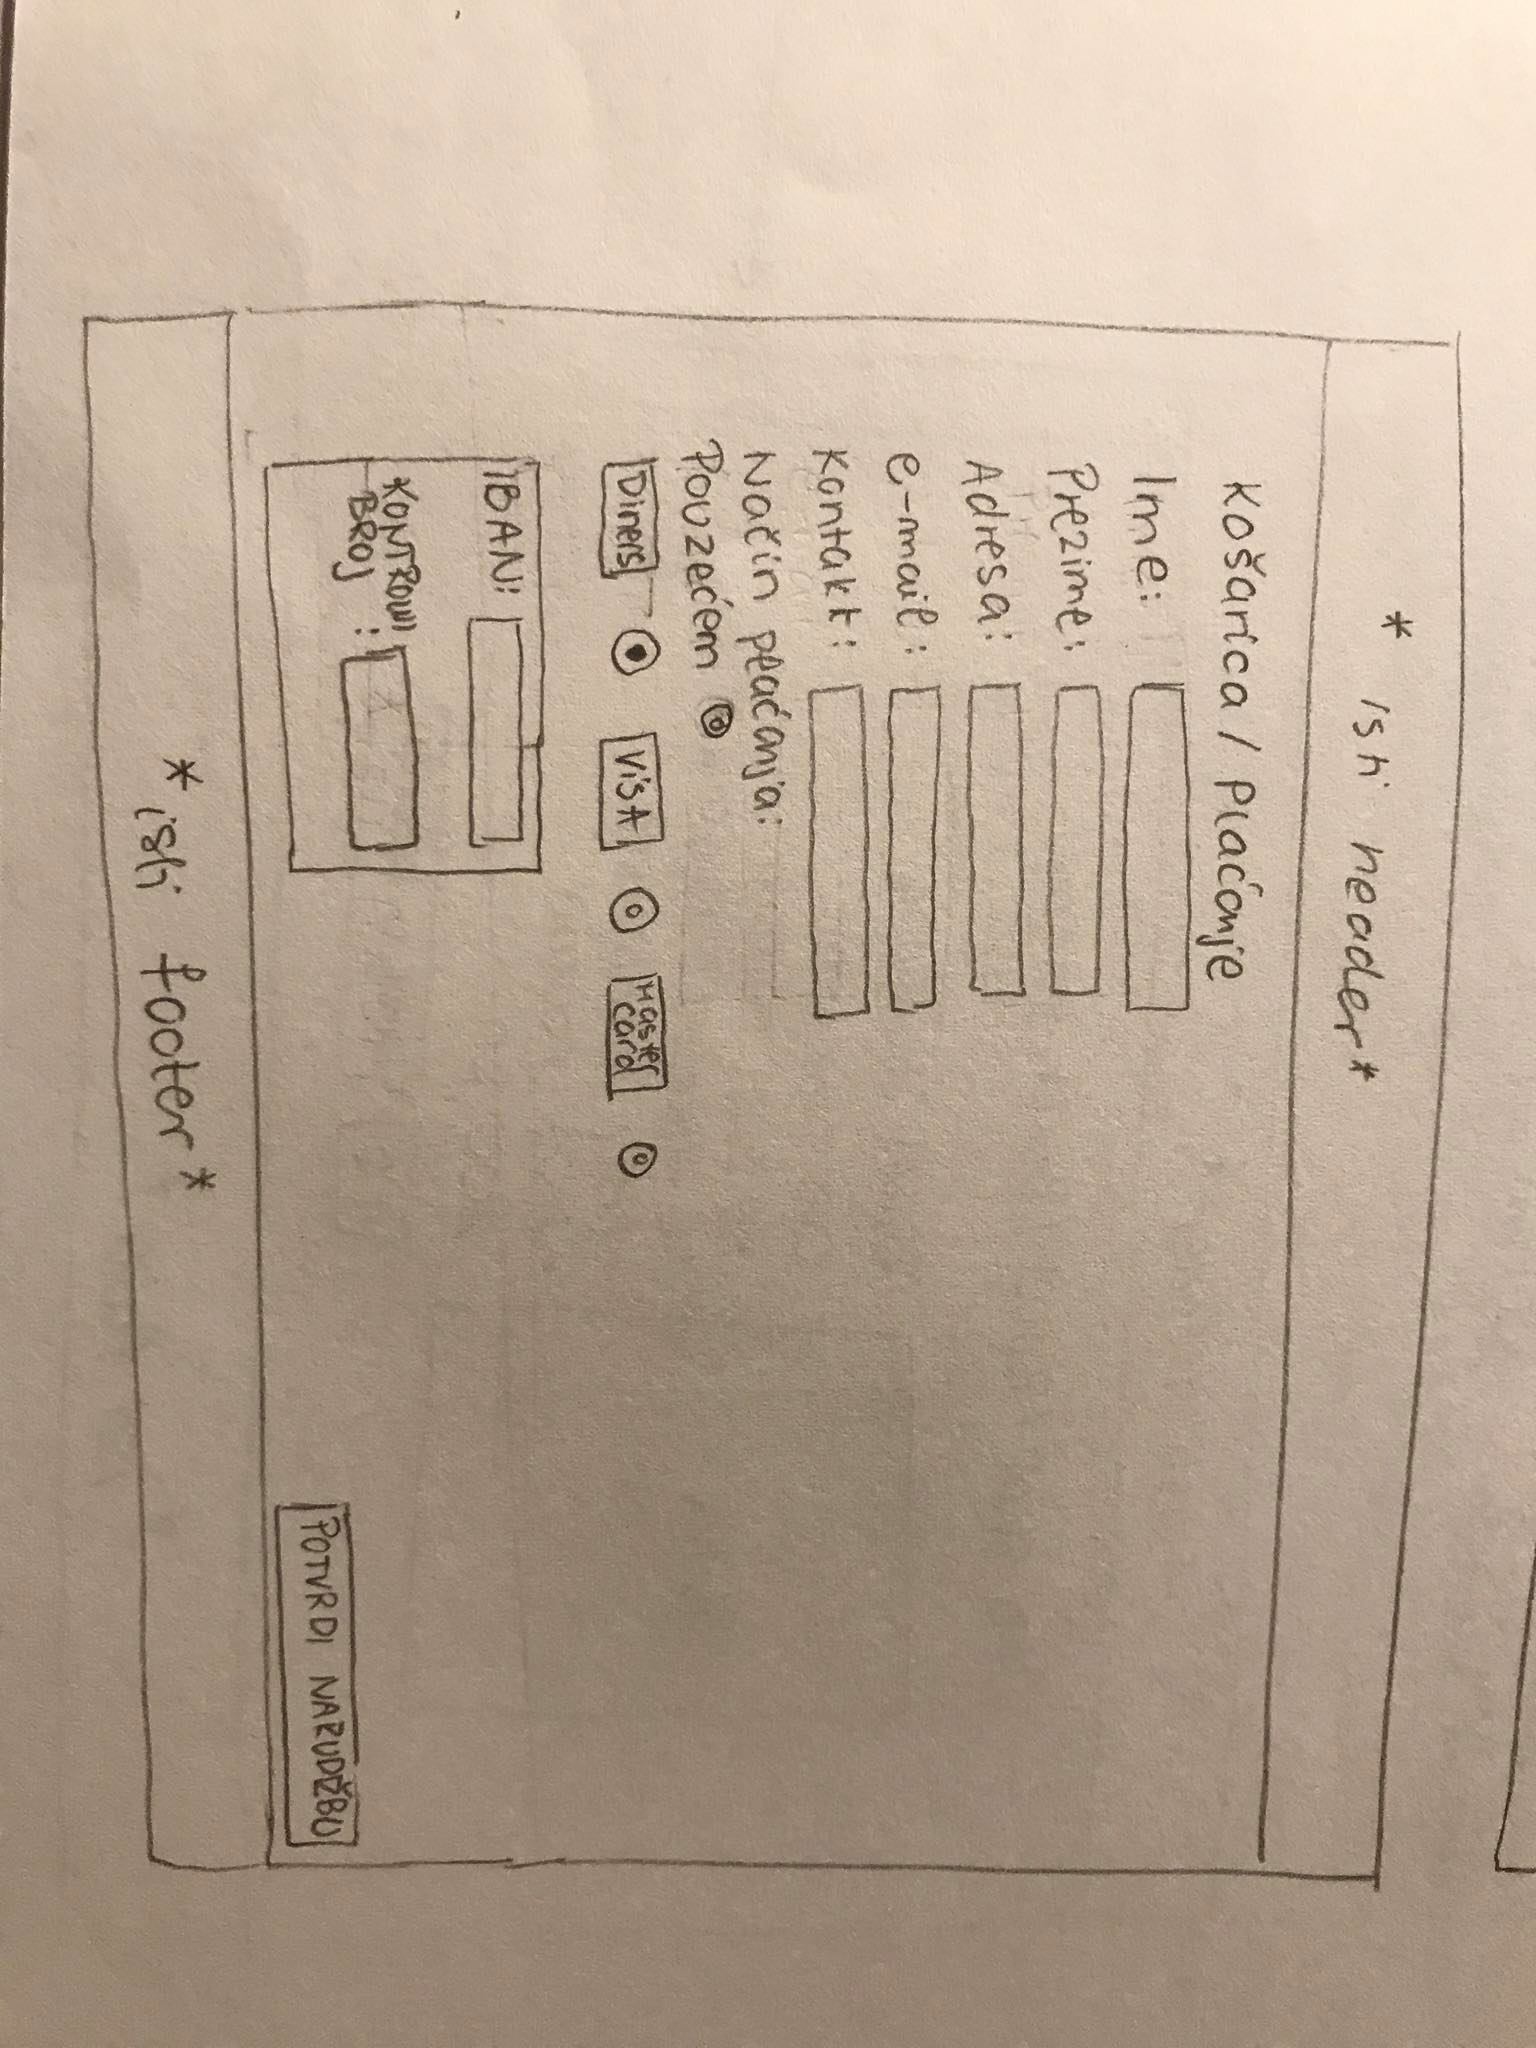 * isti header*
Košarica / Plaćanje
Ime:
Prezime:
Adresa:
e-mail:
Kontakt:
Način plaćanja:
Pouzećem
Diners VISA Master
card
IBAN:
KONTROLNI
BROJ :
POTVRDI NARUDŽBU
*isti footer*